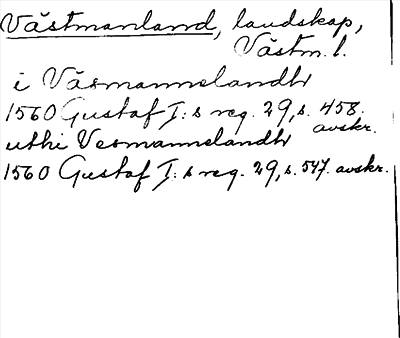 Västmanland, landskap,
Västm. l.
i Väsmannelandh
1560 Gustaf I:s reg. 29, s. 458.
avskr.
uthi Vesmannelandh
1560 Gustaf I:s reg. 29, s. 547. avskr.